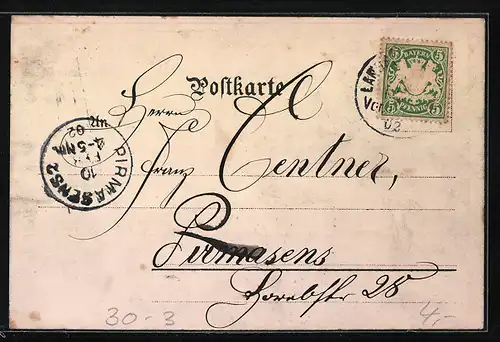 Postkarte
An
Herrn
Franz Centner,
Pirmasens
Horebstr 28
BAYERN
5 5
PFENNIG
5 5
PIRMASENS 2
10
4-5 NM
02
02
30-3
4,-